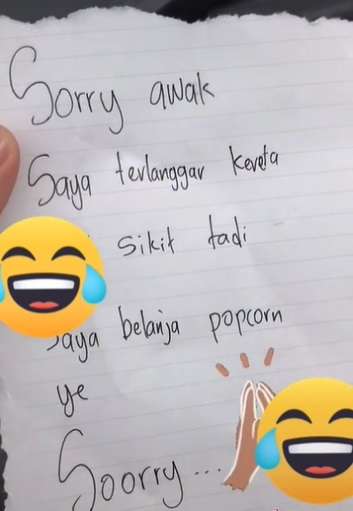 Sorry awak
Saya terlanggar kereta
sikit tadi
Saya belanja popcorn
ye
Soorry...